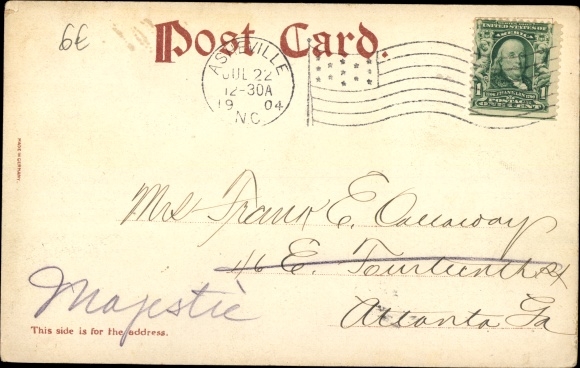 6€
Post Card.
ASHEVILLE
JUL 22
12-30A
19 04
N.C.
UNITED STATES OF
AMERICA
1 1
POSTAGE
ONE CENT
Mrs Frank E. Callaway
46 E. Fourteenth St
Atlanta Ga
Majestic
This side is for the address.